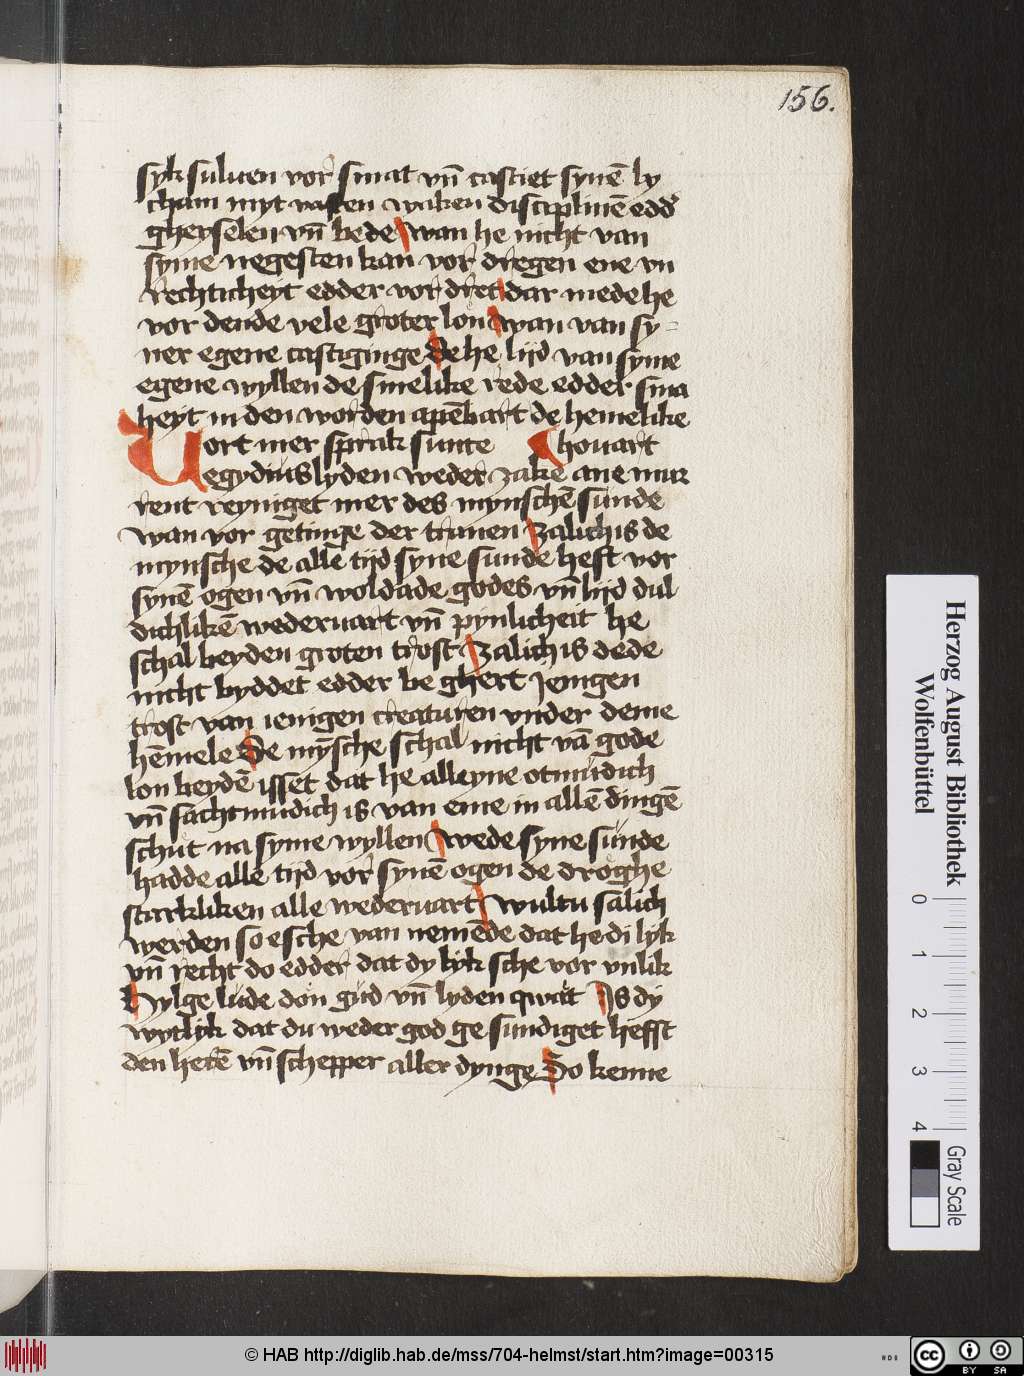 156.
syk suluen vor smat vn̄ castiet synē ly
cham myt vasten waken disciplinē edd'
gheyselen vn̄ bede wan he nicht van
syme negesten kan vor dregen ene vn
rechticheyt edder vor dret dar mede he
vor dende vele groter lon wan van sy=
ner egene castiginge De he lijd van syme
egene wyllen de smelike rede edder sma
heyt in den worden apēbart de hemelike
Uort mer sprak sunte Thouart
egydius lyden weder zake ane mur
rent reyniget mer des mynschē sunde
wan vor getinge der tranen Zalich is de
mynsche de alle tijd syne sunde heft vor
synē ogen vn̄ woldade godes vn̄ lijd dul
dichlikē wederuart vn̄ pynlicheit he
schal beyden groten trost Zalich is dede
nicht byddet edder be ghert jenigen
trost van ienigen creaturen vnder deme
hēmele De mȳsche schal nicht vā gode
lon beydē isset dat he alleyne otmůdich
vn̄ sachtmudich is van eme in allē dingē
schut na syme wyllen Wede syne sunde
hadde alle tijd vor synē ogen de droghe
starkliken alle wederuart Wultu salich
werden so esche van nemēde dat he di lyk
vn̄ recht do edder dat dy lyk sche vor vnlik
Hylge lude don gud vn̄ lyden qwat Is dy
wytlyk dat du weder god ge sundiget hefft
den herē vn̄ schepper aller dynge So kenne
Herzog August Bibliothek
Wolfenbüttel
0 1 2 3 4
Gray Scale
© HAB http://diglib.hab.de/mss/704-helmst/start.htm?image=00315
cc BY SA